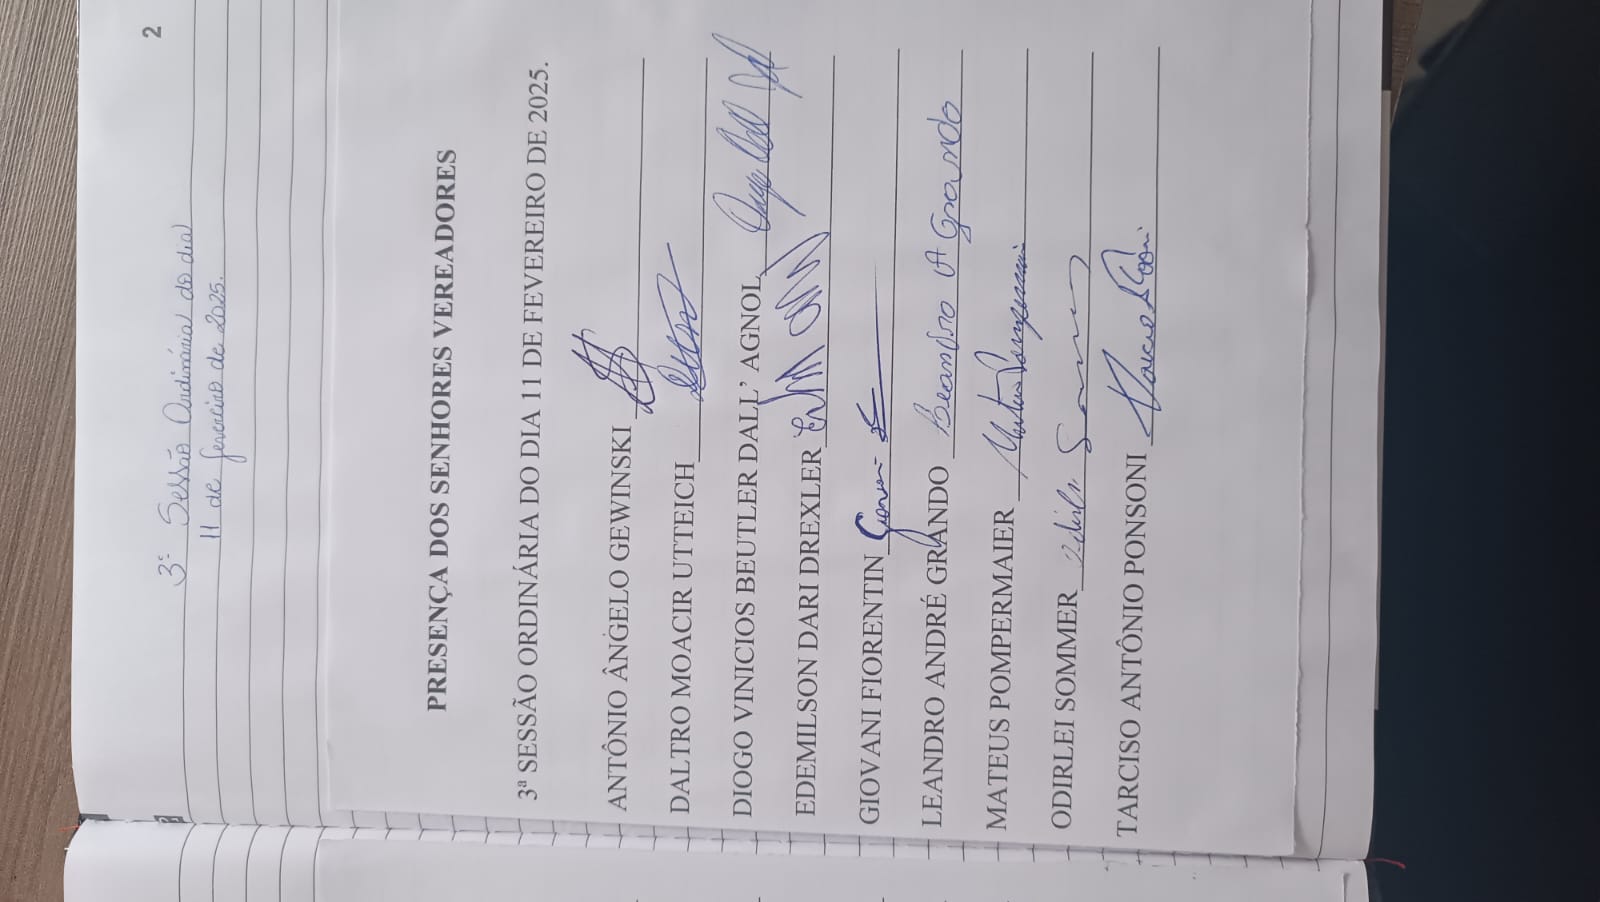 2
3ª Sessão Ordinária do dia
11 de fevereiro de 2025.
PRESENÇA DOS SENHORES VEREADORES
3ª SESSÃO ORDINÁRIA DO DIA 11 DE FEVEREIRO DE 2025.
ANTÔNIO ÂNGELO GEWINSKI
DALTRO MOACIR UTTEICH
DIOGO VINICIOS BEUTLER DALL' AGNOL
EDEMILSON DARI DREXLER
GIOVANI FIORENTIN Giovani
LEANDRO ANDRÉ GRANDO Leandro A Grando
MATEUS POMPERMAIER Mateus Pompermaier
ODIRLEI SOMMER Odirlei Sommer
TARCISO ANTÔNIO PONSONI